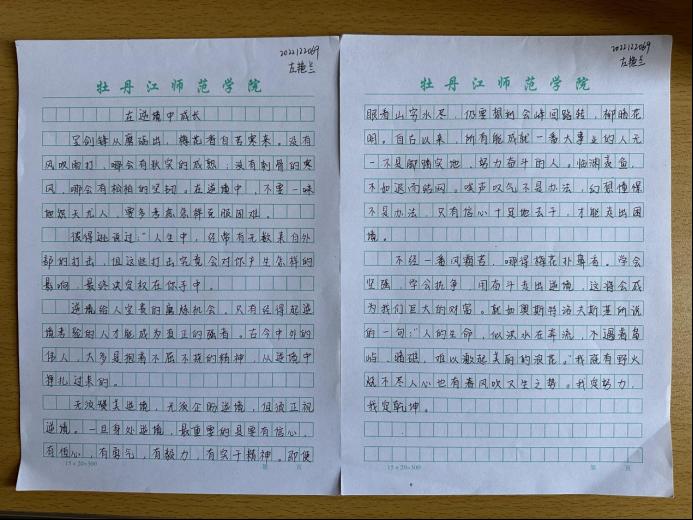 2022122069
左艳兰
牡丹江师范学院
在逆境中成长
宝剑锋从磨砺出，梅花香自苦寒来。没有
风吹雨打，哪会有秋实的成熟；没有刺骨的寒
风，哪会有松柏的坚韧。在逆境中，不要一味
地怨天尤人，要多考虑怎样克服困难。
彼得逊说过："人生中，经常有无数来自外
部的打击，但这些打击究竟会对你产生怎样的
影响，最终决定权在你手中。
逆境给人宝贵的磨炼机会，只有经得起逆
境考验的人才能成为真正的强者。古今中外的
伟人，大多是抱着不屈不挠的精神，从逆境中
挣扎过来的。
无须赞美逆境，无须企盼逆境，但须正视
逆境。一旦身处逆境，最重要的是要有信心，
有恒心，有勇气，有毅力，有实干精神。即使
15×20=300
第 页
2022122069
左艳兰
牡丹江师范学院
眼看山穷水尽，仍要想到会峰回路转，柳暗花
明。自古以来，所有能成就一番大事业的人无
一不是脚踏实地、努力奋斗的人。临渊羡鱼，
不如退而结网。唉声叹气不是办法，幻想懂得
不是办法，只有信心十足地去干，才能走出困
境。
不经一番风霜苦，哪得梅花扑鼻香。学会
坚强，学会抗争，用奋斗走出逆境，这将会成
为我们巨大的财富。就如奥斯特洛夫斯基所说
的一句："人的生命，似洪水在奔流，不遇着岛
屿、暗礁，难以激起美丽的浪花。"我既有野火
烧不尽人心也有春风吹又生之势。我定努力，
我定乾坤。
15×20=300
第 页